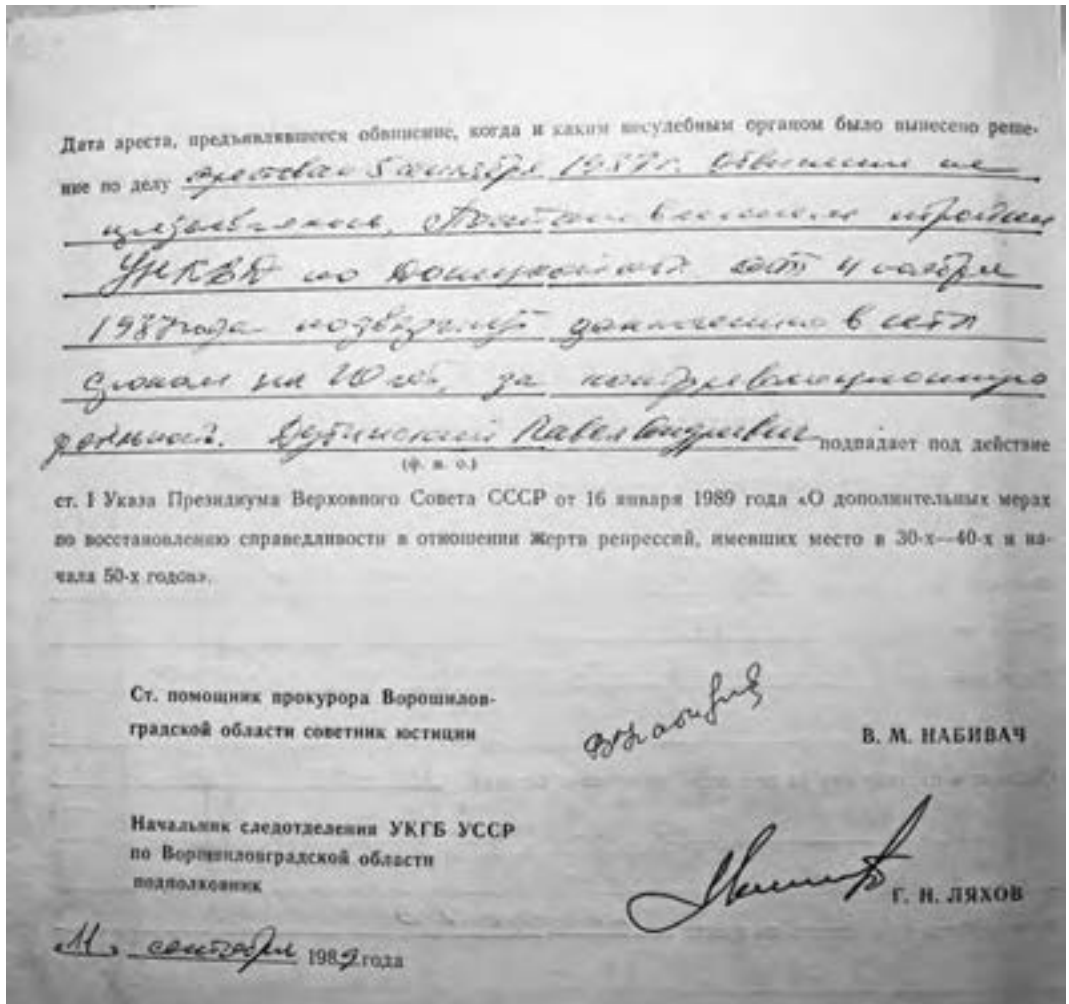 Дата ареста, предъявлявшееся обвинение, когда и каким несудебным органом было вынесено реше-
ние по делу арестован 5 октября 1937 г. Обвинение не
предъявлялось, Постановлением тройки
УНКВД по Донецкой обл 4 ноября
1937 года подвергнут заключению в ИТЛ
сроком на 10 лет, за контрреволюционную
деятельность. Павел Андреевич подпадает под действие
(ф. и. о.)
ст. 1 Указа Президиума Верховного Совета СССР от 16 января 1989 года «О дополнительных мерах
по восстановлению справедливости в отношении жертв репрессий, имевших место в 30-х—40-х и на-
чала 50-х годов».
Ст. помощник прокурора Ворошилов-
градской области советник юстиции
В. М. НАБИВАЧ
Начальник следотделения УКГБ УССР
по Ворошиловградской области
подполковник
Г. Н. ЛЯХОВ
11 сентября 1989 года